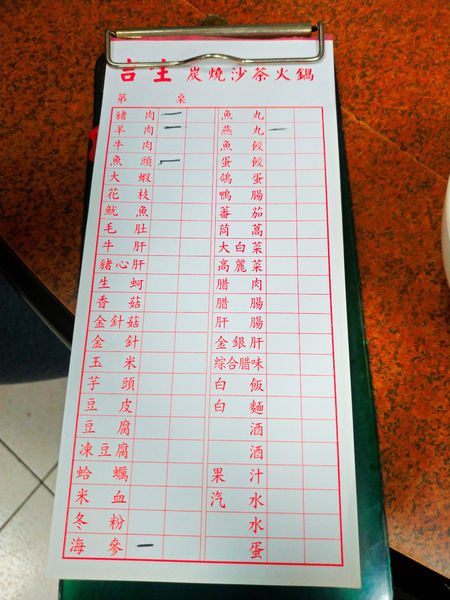 炭燒沙茶火鍋
第 桌
豬肉 一
羊肉 一
牛肉
魚頭 一
大蝦
花枝
魷魚
毛肚
牛肝
豬心肝
生蚵
香菇
金針菇
金針
玉米
芋頭
豆皮
豆腐
凍豆腐
蛤蠣
米血
冬粉
海參 一
魚丸
燕丸 一
魚餃
蛋餃
鴿蛋
鴨腸
蕃茄
茼蒿
大白菜
高麗菜
腊肉
腊腸
肝腸
金銀肝
綜合腊味
白飯
白麵
酒
酒
果汁
汽水
水
蛋